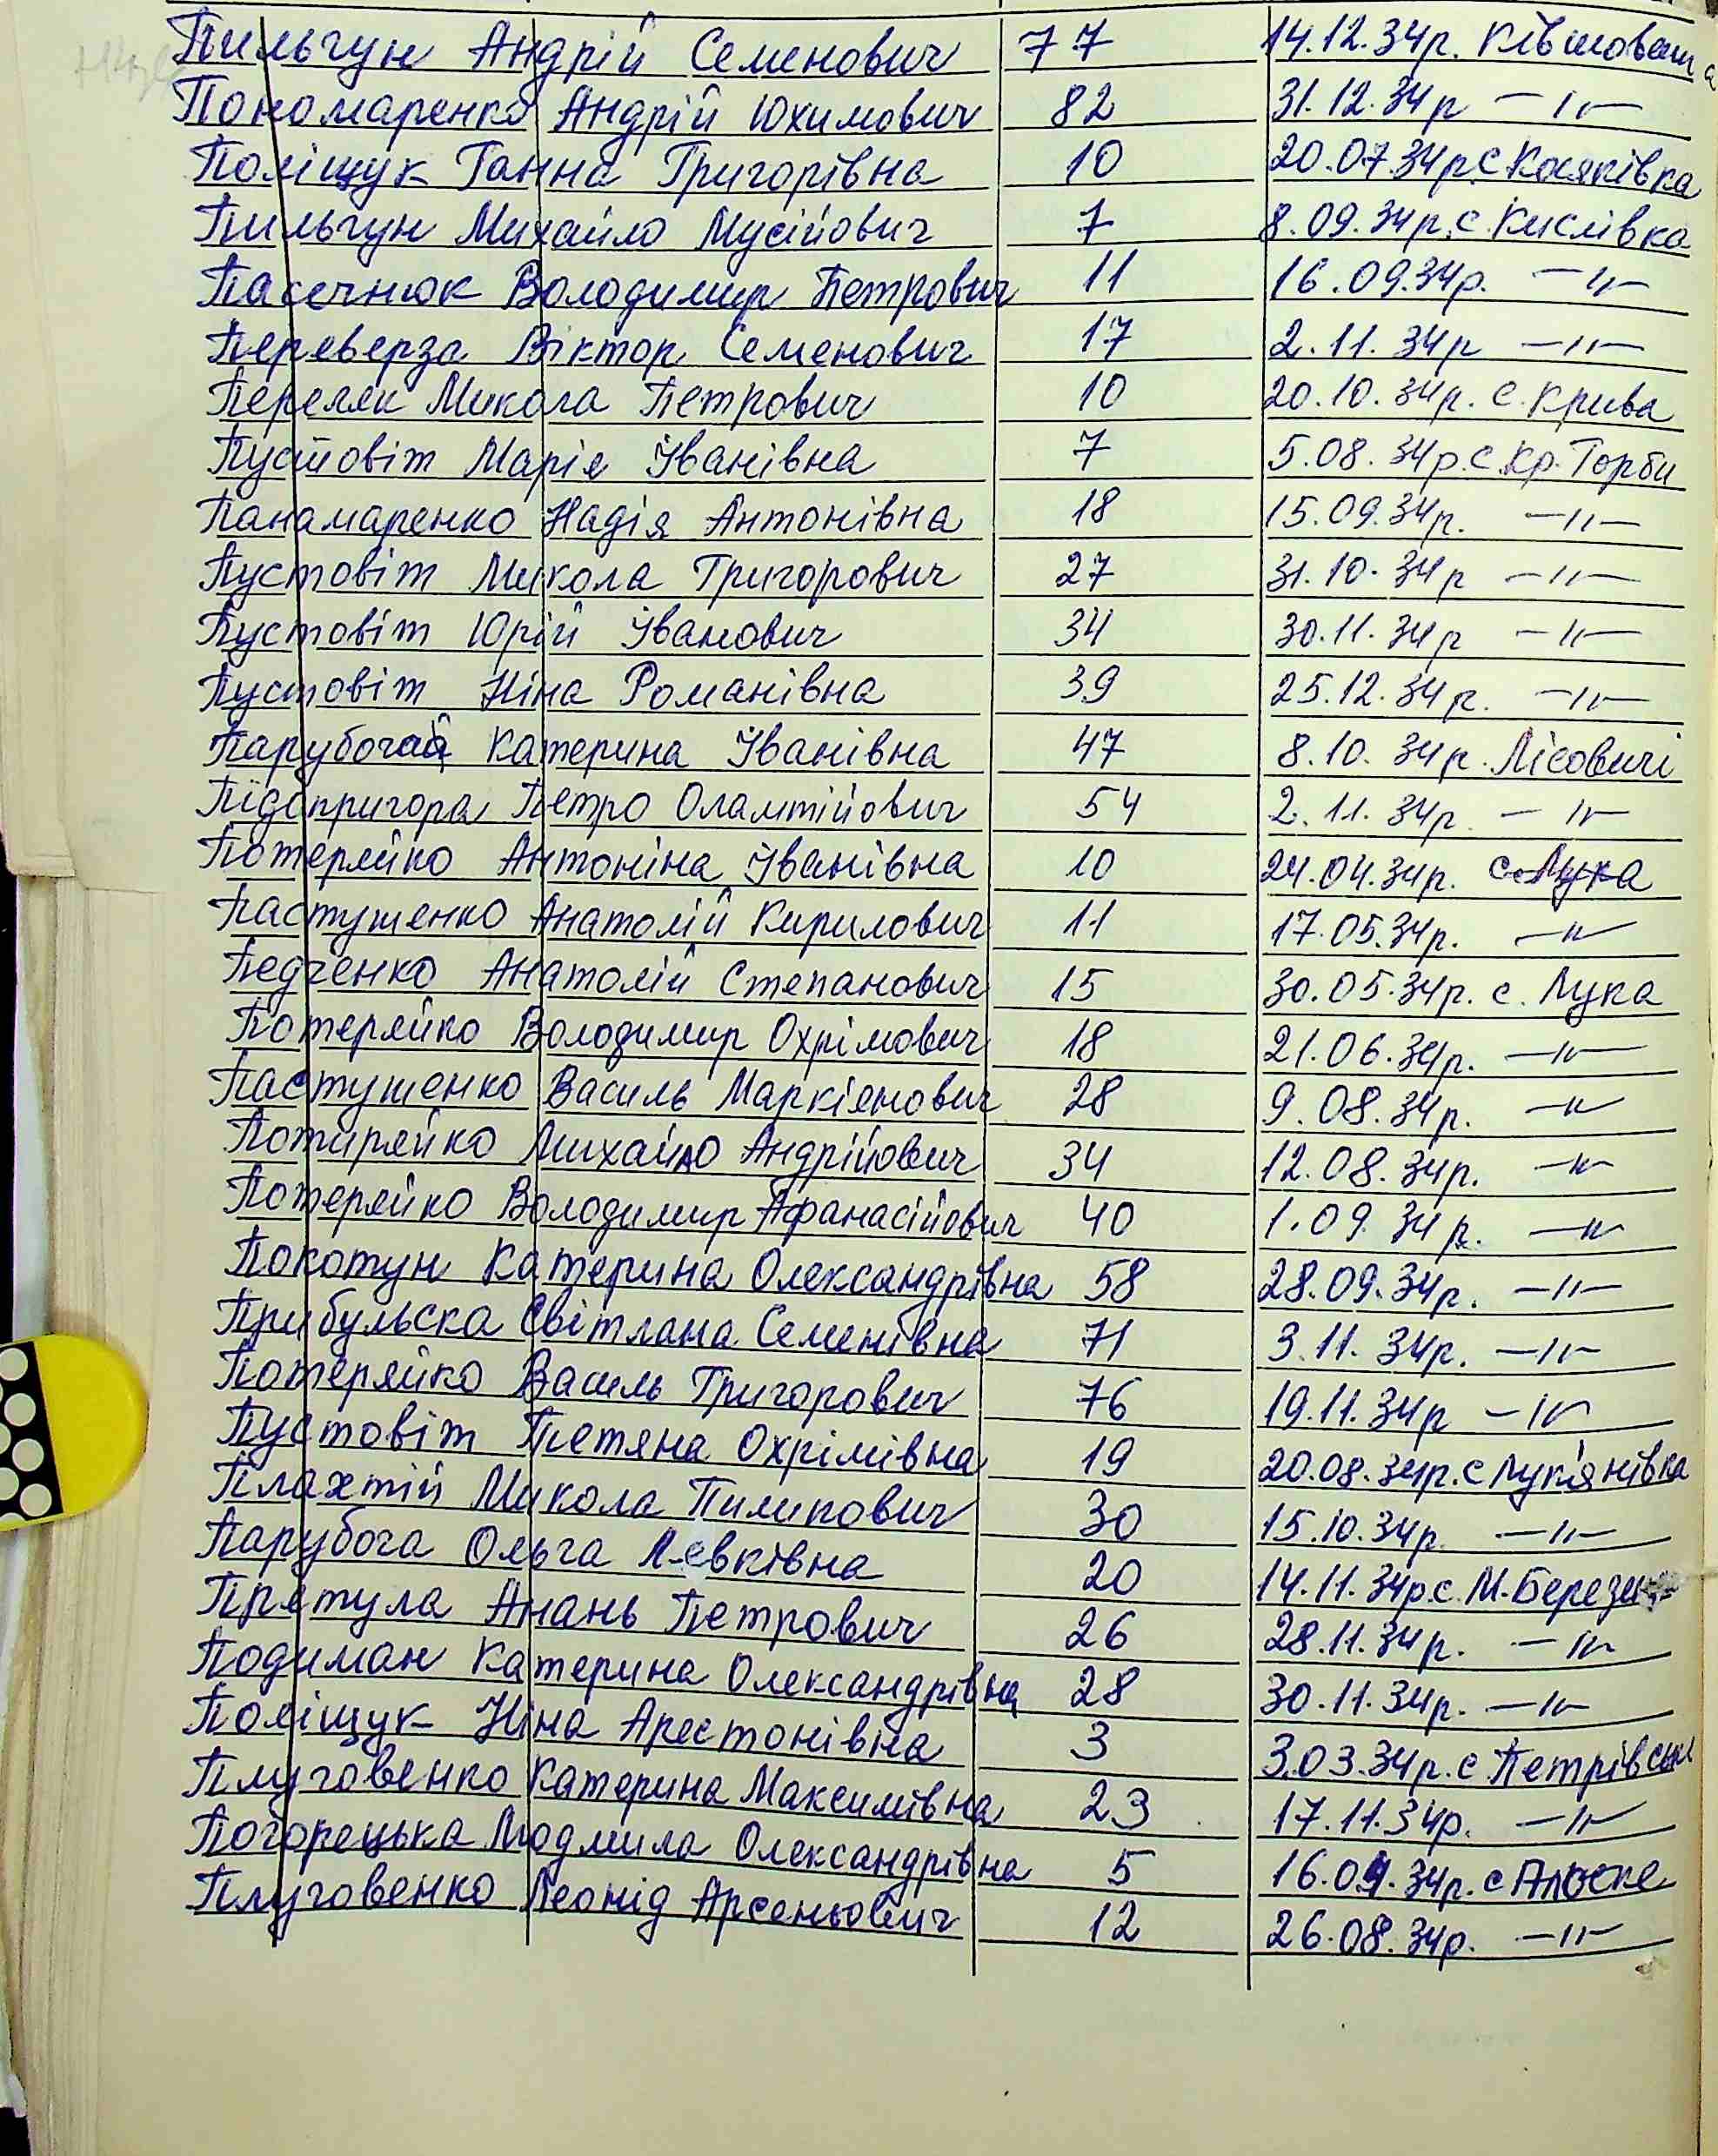 Пильгун Андрій Семенович 77 14.12.34р. Ківшовата
Пономаренко Андрій Юхимович 82 31.12.34р —〃—
Поліщук Ганна Григорівна 10 20.07.34р.с Косяківка
Пильгун Михайло Мусійович 7 8.09.34р.с. Кислівка
Пасечнюк Володимир Петрович 11 16.09.34р. —〃—
Переверза Віктор Семенович 17 2.11.34р —〃—
Переляк Микола Петрович 10 20.10.34р. с. Крива
Пустовіт Марія Іванівна 7 5.08.34р.с.Кр.Торби
Панамаренко Надія Антонівна 18 15.09.34р. —〃—
Пустовіт Микола Григорович 27 31.10.34р —〃—
Пустовіт Юрій Іванович 34 30.11.34р —〃—
Пустовіт Ніна Романівна 39 25.12.34р. —〃—
Катерина Іванівна 47 8.10.34р. Лісовичі
Підопригора Петро 54 2.11.34р. —〃—
Потеряйко Антоніна Іванівна 10 24.04.34р. с.Лука
Пастушенко Анатолій Кирилович 11 17.05.34р. —〃—
Педченко Анатолій Степанович 15 30.05.34р. с. Лука
Потеряйко Володимир Охрімович 18 21.06.34р. —〃—
Пастушенко Василь Маркіянович 28 9.08.34р. —〃—
Потиряйко Михайло Андрійович 34 12.08.34р. —〃—
Потеряйко Володимир Афанасійович 40 1.09.34р. —〃—
Покотун Катерина Олександрівна 58 28.09.34р. —〃—
Прибульска Світлана Семенівна 71 3.11.34р. —〃—
Потеряйко Василь Григорович 76 19.11.34р —〃—
Пустовіт Тетяна Охрімівна 19 20.08.34р.с Лук'янівка
Плахтій Микола Пилипович 30 15.10.34р. —〃—
Парубоча Ольга Левківна 20 14.11.34р.с. М.Березянка
Притула Анань Петрович 26 28.11.34р. —〃—
Подиман Катерина Олександрівна 28 30.11.34р. —〃—
Поліщук Ніна Арестонівна 3 3.03.34р.с Петрівське
Плуговенко Катерина Максимівна 23 17.11.34р. —〃—
Погорецька Людмила Олександрівна 5 34р. с Плоске
Плуговенко Леонід Арсеньович 12 26.08.34р. —〃—